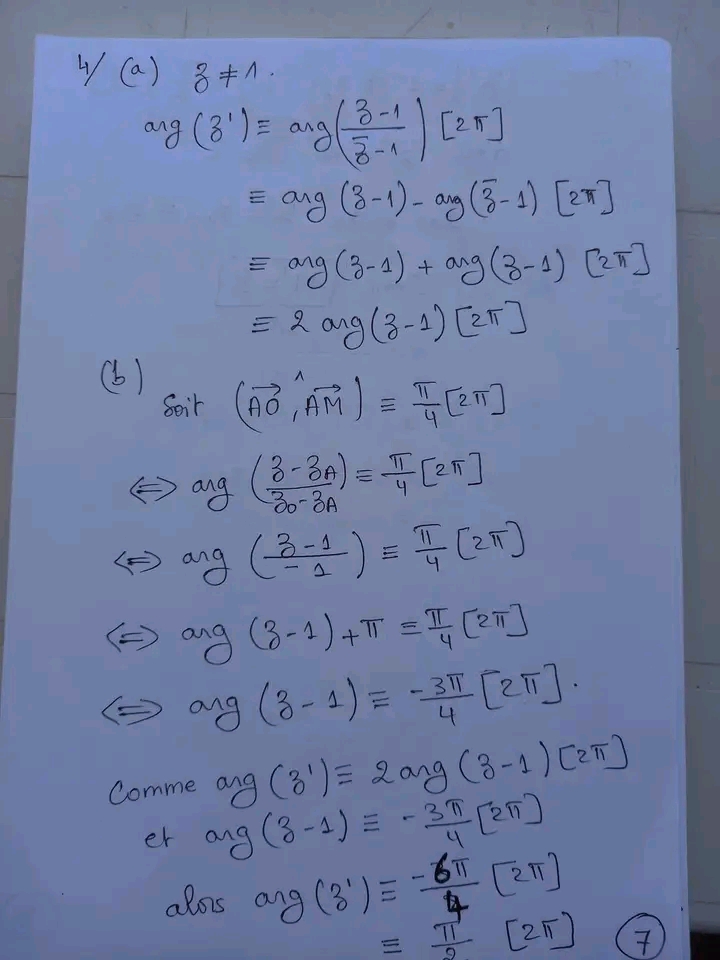 4/ (a) z ≠ 1.
arg(z') ≡ arg((z-1)/(z̄-1)) [2π]
≡ arg(z-1) - arg(z̄-1) [2π]
≡ arg(z-1) + arg(z-1) [2π]
≡ 2 arg(z-1) [2π]
(b)
Soit (AO→ ^, AM→) ≡ π/4 [2π]
⟺ arg((z-z_A)/(z_0-z_A)) ≡ π/4 [2π]
⟺ arg((z-1)/(-1)) ≡ π/4 [2π]
⟺ arg(z-1) + π ≡ π/4 [2π]
⟺ arg(z-1) ≡ -3π/4 [2π].
Comme arg(z') ≡ 2 arg(z-1) [2π]
et arg(z-1) ≡ -3π/4 [2π]
alors arg(z') ≡ -6π/4 [2π]
≡ π/2 [2π]
7